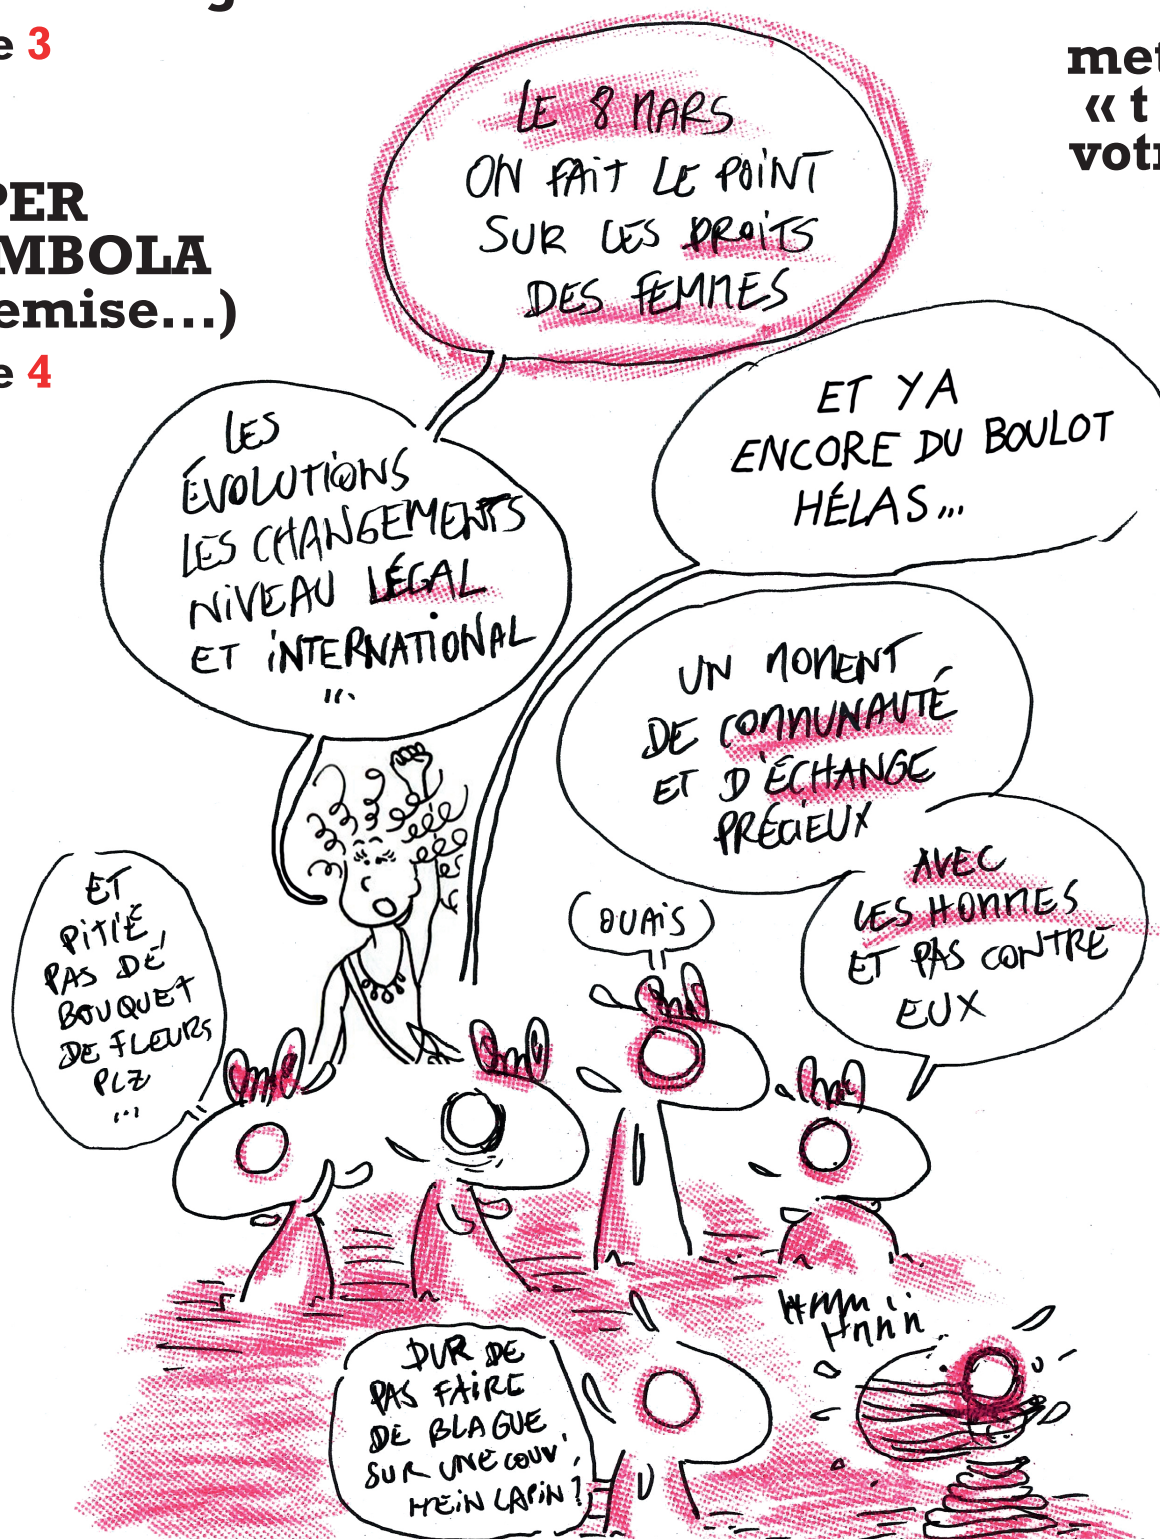 e 3
PER
MBOLA
emise...)
e 4
met
« t
votr
LE 8 MARS
ON FAIT LE POINT
SUR LES DROITS
DES FEMMES
LES
ÉVOLUTIONS
LES CHANGEMENTS
NIVEAU LÉGAL
ET INTERNATIONAL
...
ET YA
ENCORE DU BOULOT
HÉLAS...
UN MOMENT
DE COMMUNAUTÉ
ET D'ÉCHANGE
PRÉCIEUX
AVEC
LES HOMMES
ET PAS CONTRE
EUX
OUAIS
ET
PITIÉ
PAS DE
BOUQUET
DE FLEURS
PLZ
...
HMMM
HNNN
DUR DE
PAS FAIRE
DE BLAGUE
SUR UNE COUV',
HEIN LAPIN?